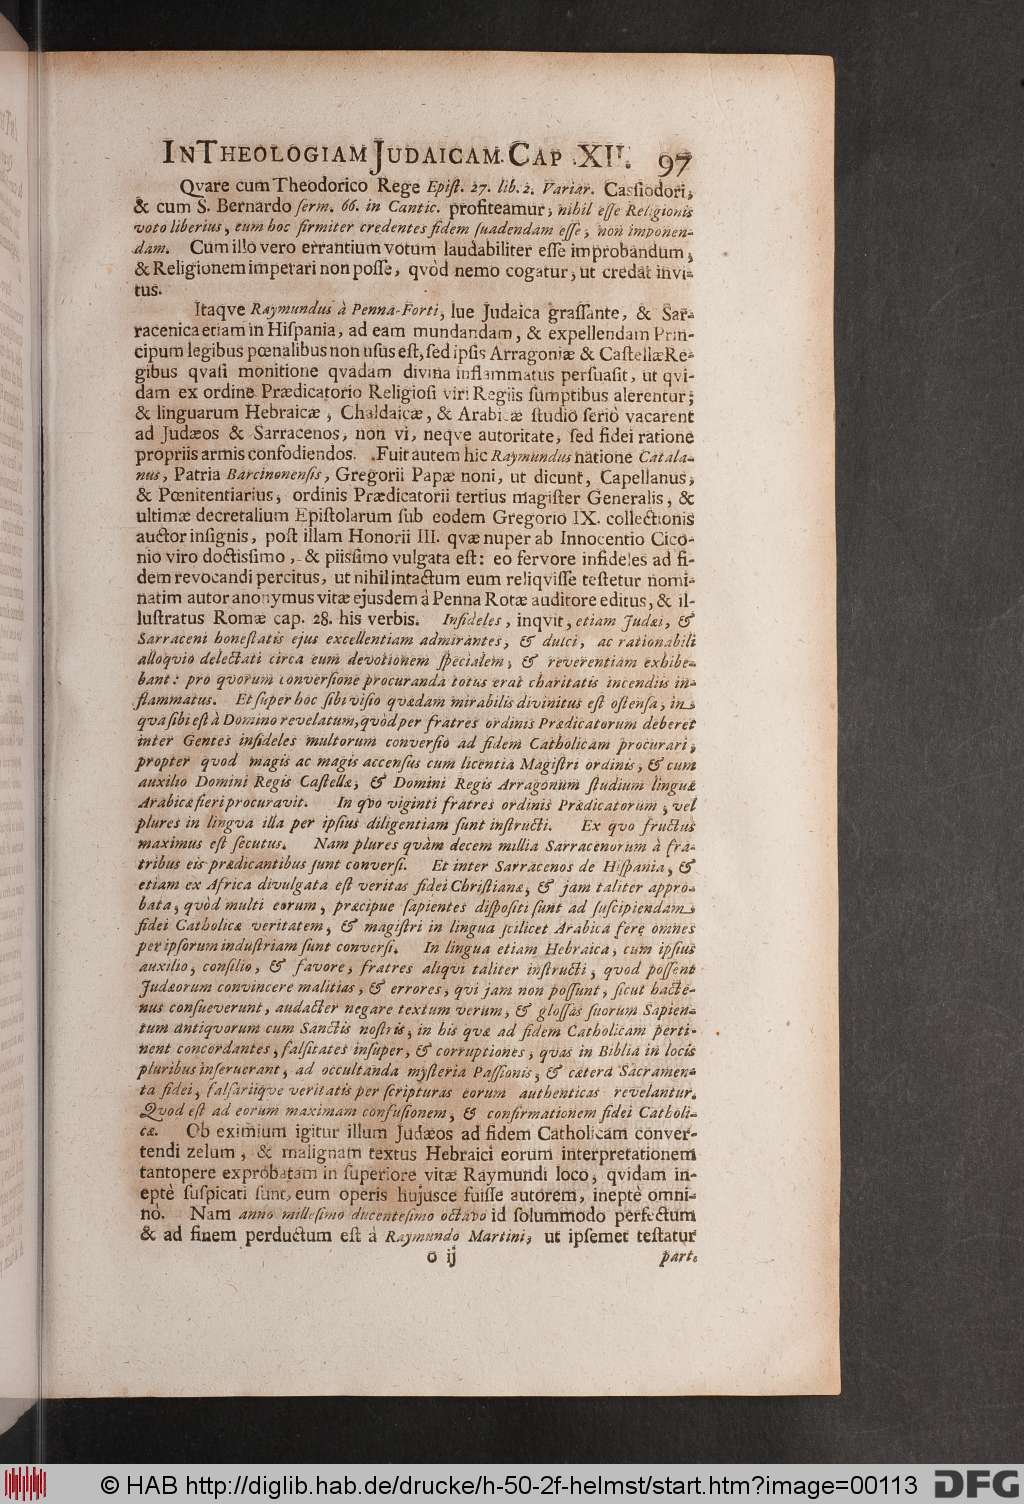 IN THEOLOGIAM JUDAICAM. CAP .XII. 97
Qvare cum Theodorico Rege Epiſt. 27. lib. 2. Variar. Casſiodori,
& cum S. Bernardo ſerm. 66. in Cantic. profiteamur, nihil eſſe Religionis
voto liberius, eum hoc firmiter credentes fidem ſuadendam eſſe, non imponen-
dam. Cum illo vero errantium votum laudabiliter eſſe improbandum,
& Religionem imperari non poſſe, qvòd nemo cogatur, ut credat invi-
tus.
Itaqve Raymundus à Penna-Forti, lue Judaica graſſante, & Sar-
racenica etiam in Hiſpania, ad eam mundandam, & expellendam Prin-
cipum legibus pœnalibus non uſus eſt, ſed ipſis Arragoniæ & Caſtellæ Re-
gibus qvaſi monitione qvadam divina inflammatus perſuaſit, ut qvi-
dam ex ordine Prædicatorio Religioſi viri Regiis ſumptibus alerentur;
& linguarum Hebraicæ, Chaldaicæ, & Arabicæ ſtudio ſerio vacarent
ad Judæos & Sarracenos, non vi, neqve autoritate, ſed fidei ratione
propriis armis confodiendos. Fuit autem hic Raymundus natione Catala-
nus, Patria Barcinonenſis, Gregorii Papæ noni, ut dicunt, Capellanus,
& Pœnitentiarius, ordinis Prædicatorii tertius magiſter Generalis, &
ultimæ decretalium Epiſtolarum ſub eodem Gregorio IX. collectionis
auctor inſignis, poſt illam Honorii III. qvæ nuper ab Innocentio Ciro-
nio viro doctisſimo, & piisſimo vulgata eſt: eo fervore infideles ad fi-
dem revocandi percitus, ut nihil intactum eum reliqviſſe teſtetur nomi-
natim autor anonymus vitæ ejusdem à Penna Rotæ auditore editus, & il-
luſtratus Romæ cap. 28. his verbis. Infideles, inqvit, etiam Judæi, &
Sarraceni honeſtatis ejus excellentiam admirantes, & dulci, ac rationabili
alloqvio delectati circa eum devotionem ſpecialem, & reverentiam exhibe-
bant: pro qvorum converſione procuranda totus erat charitatis incendiis in-
flammatus. Et ſuper hoc ſibi viſio qvædam mirabilis divinitus eſt oſtenſa, in
qva ſibi eſt à Domino revelatum, qvòd per fratres ordinis Prædicatorum deberet
inter Gentes infideles multorum converſio ad fidem Catholicam procurari,
propter qvod magis ac magis accenſus cum licentia Magiſtri ordinis, & cum
auxilio Domini Regis Caſtellæ, & Domini Regis Arragonum ſtudium linguæ
Arabicæ fieri procuravit. In qvo viginti fratres ordinis Prædicatorum, vel
plures in lingva illa per ipſius diligentiam ſunt inſtructi. Ex qvo fructus
maximus eſt ſecutus. Nam plures qvàm decem millia Sarracenorum à fra-
tribus eis prædicantibus ſunt converſi. Et inter Sarracenos de Hiſpania, &
etiam ex Africa divulgata eſt veritas fidei Chriſtianæ, & jam taliter appro-
bata, qvòd multi eorum, præcipue ſapientes diſpoſiti ſunt ad ſuſcipiendam
fidei Catholicæ veritatem, & magiſtri in lingua ſcilicet Arabica fere omnes
per ipſorum induſtriam ſunt converſi. In lingua etiam Hebraica, cum ipſius
auxilio, conſilio, & favore, fratres aliqvi taliter inſtructi, quod poſſent
Judæorum convincere malitias, & errores, qvi jam non poſſunt, ſicut hacte-
nus conſueverunt, audacter negare textum verum, & gloſſas ſuorum Sapien-
tum antiqvorum cum Sanctis noſtris, in his qvæ ad fidem Catholicam perti-
nent concordantes, falſitates inſuper, & corruptiones, qvas in Biblia in locis
pluribus inſeruerant, ad occultanda myſteria Paſſionis, & cætera Sacramen-
ta fidei, falſariiqve veritatis per ſcripturas eorum authenticas revelantur.
Qvod eſt ad eorum maximam confuſionem, & confirmationem fidei Catholi-
cæ. Ob eximium igitur illum Judæos ad fidem Catholicam conver-
tendi zelum, & malignam textus Hebraici eorum interpretationem
tantopere exprobatam in ſuperiore vitæ Raymundi loco, qvidam in-
eptè ſuſpicati ſunt, eum operis hujusce fuiſſe autorem, ineptè omni-
nò. Nam anno milleſimo ducenteſimo octavo id ſolummodo perfectum
& ad finem perductum eſt à Raymundo Martini, ut ipſemet teſtatur
o ij part.
© HAB http://diglib.hab.de/drucke/h-50-2f-helmst/start.htm?image=00113 DFG